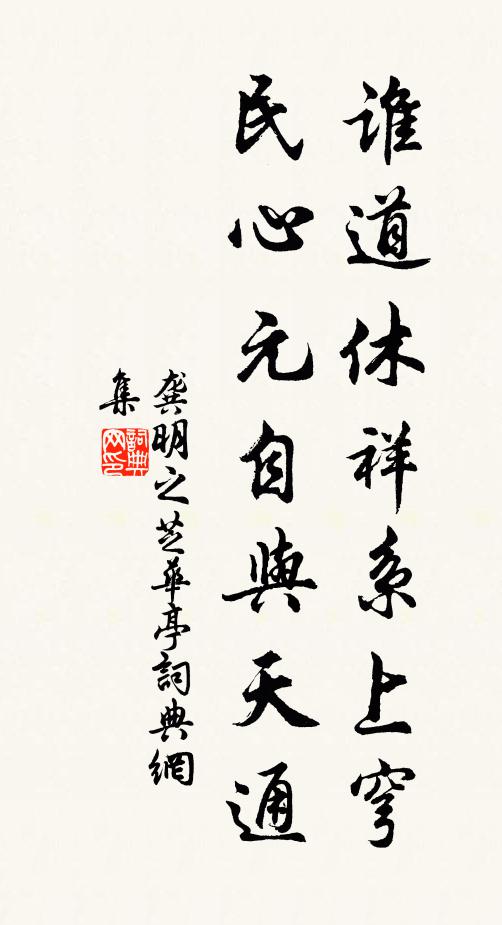 誰道休祥系上穹
民心元自與天通
龔明之芝華亭詞典網
集
詞典
网印